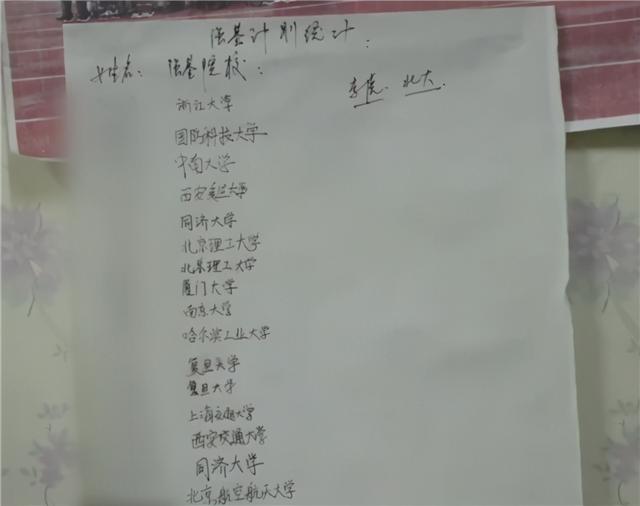 强基计划统计：
姓名： 强基院校：
李虎. 北大.
浙江大学
国防科技大学
中南大学
西安交通大学
同济大学
北京理工大学
北京理工大学
厦门大学
南京大学
哈尔滨工业大学
复旦大学
复旦大学
上海交通大学
西安交通大学
同济大学
北京航空航天大学